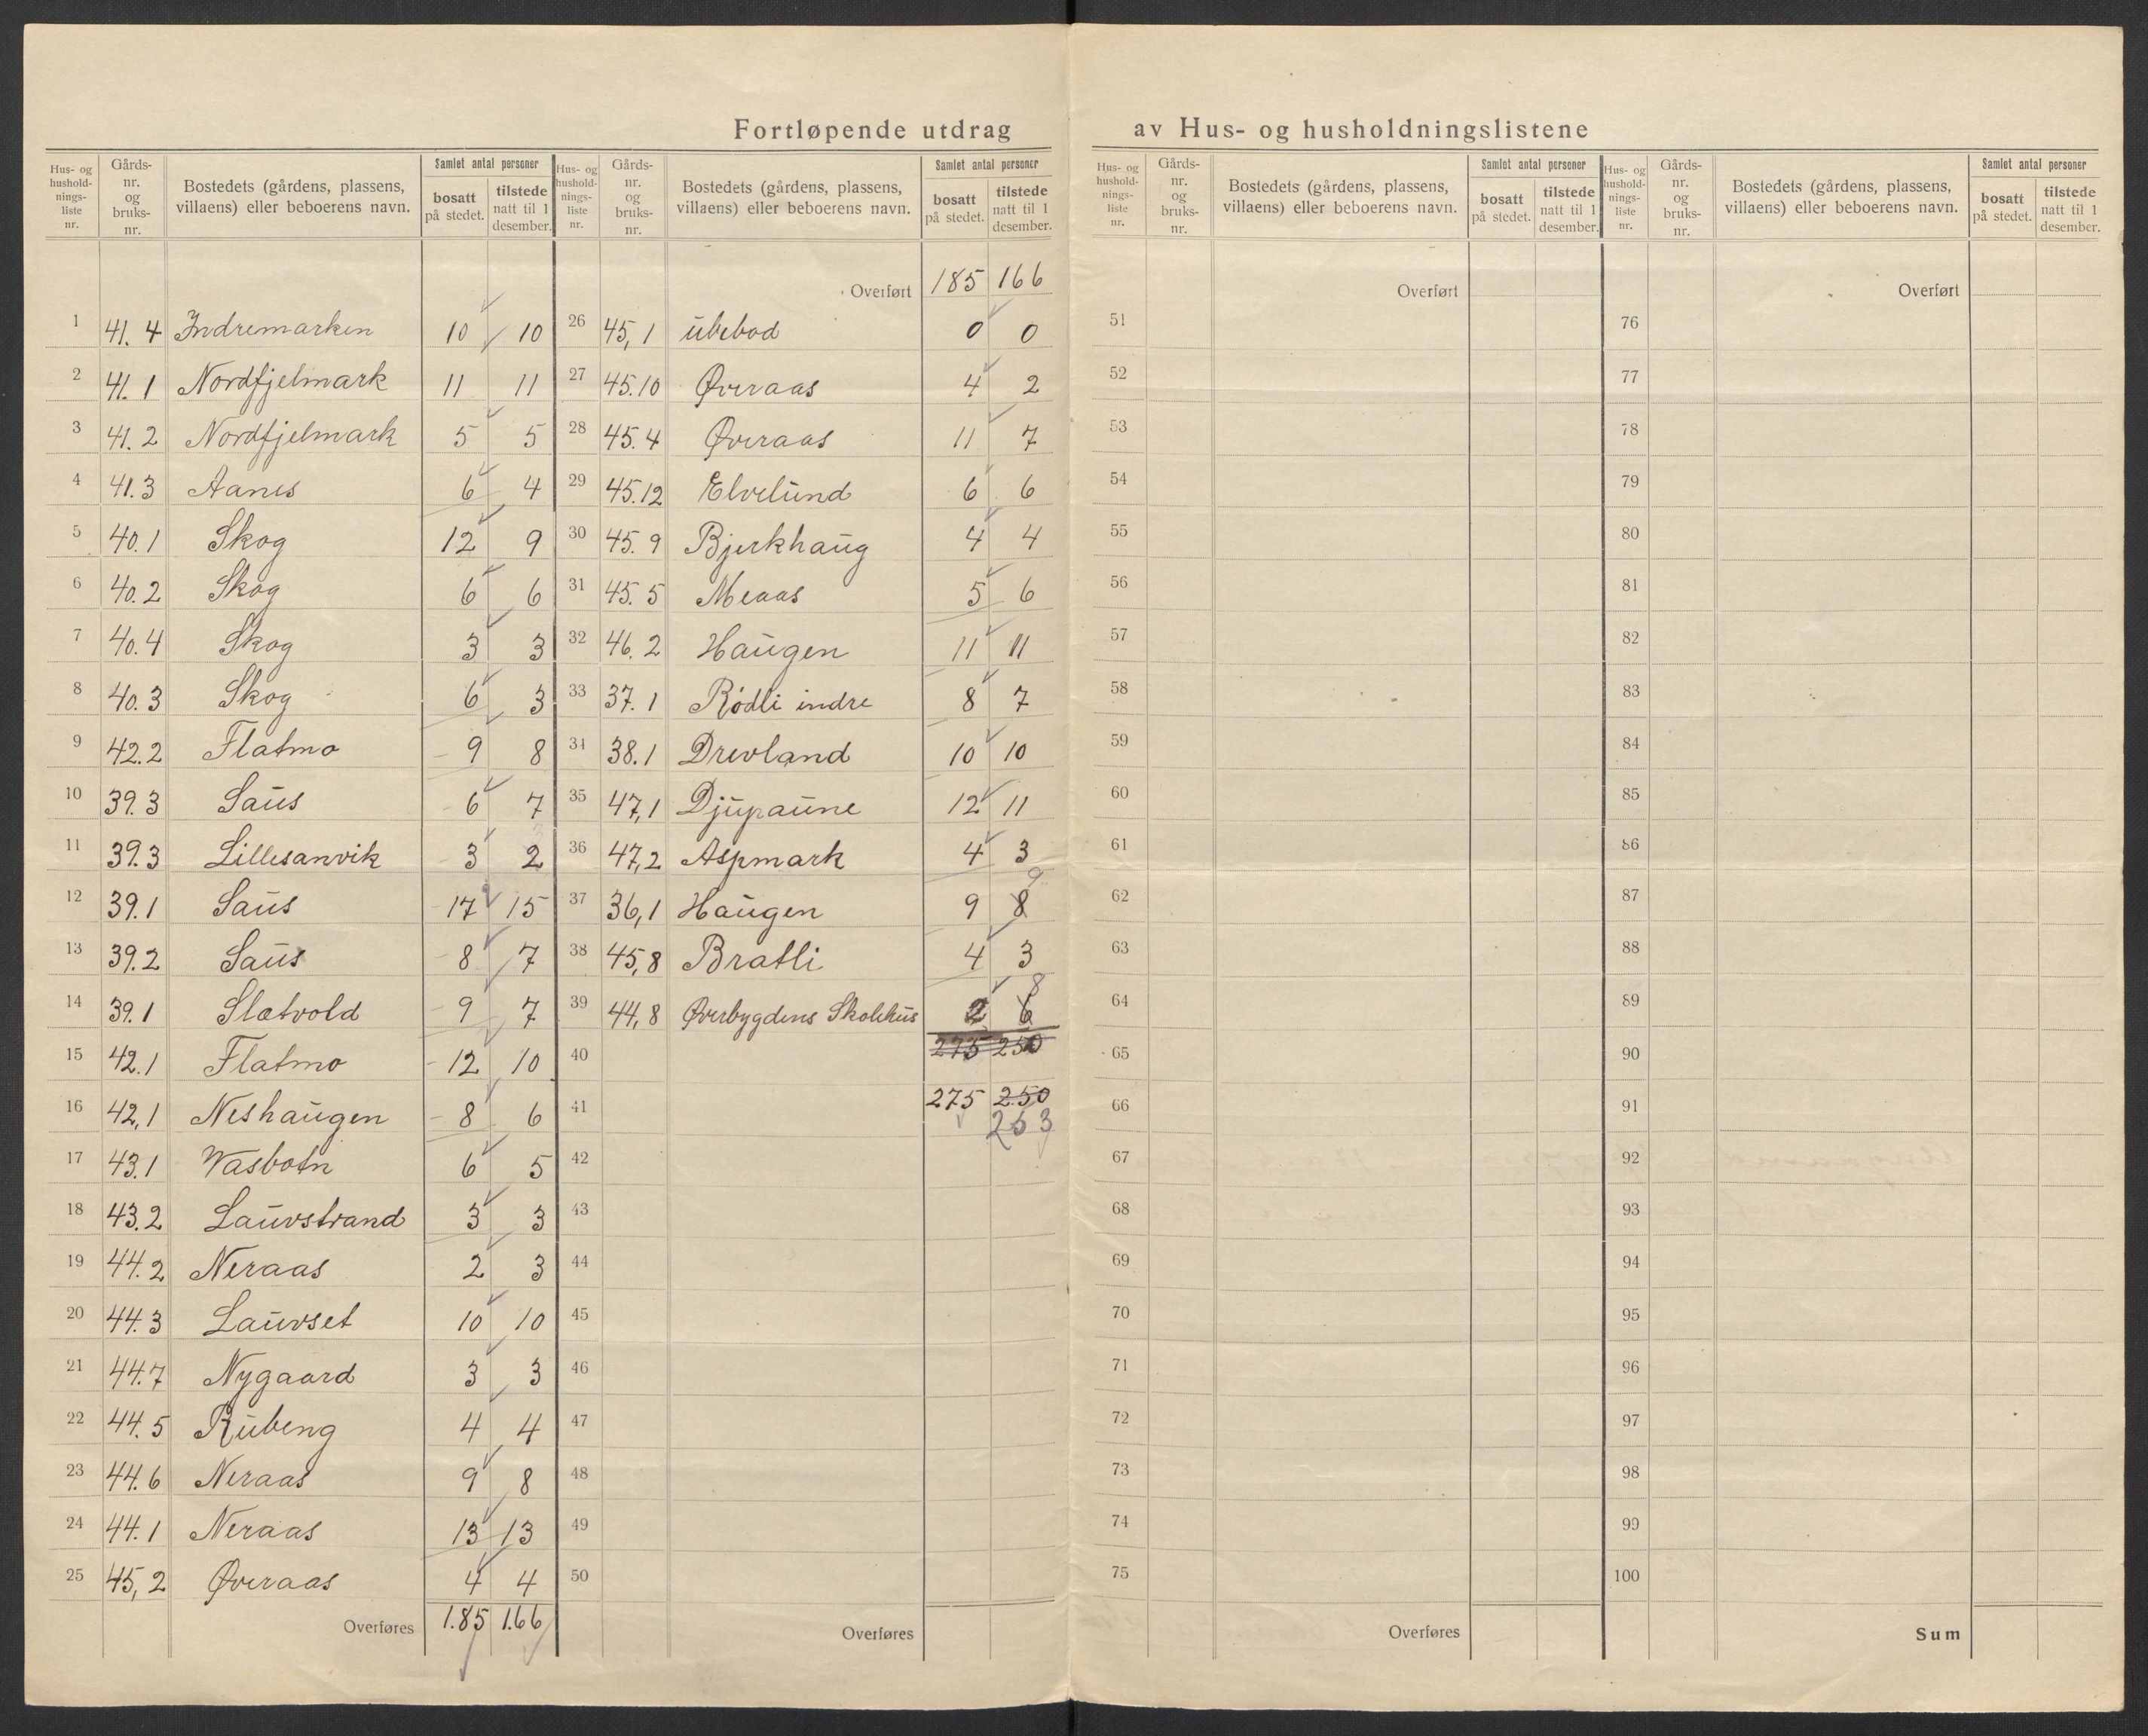 Fortløpende utdrag av Hus- og husholdningslistene
Hus- og hushold-nings-liste nr. | Gårds-nr. og bruks-nr. | Bostedets (gårdens, plassens, villaens) eller beboerens navn. | Samlet antal personer | bosatt på stedet. | tilstede natt til 1 desember.
1 41.4 Indremarken 10 10
2 41.1 Nordfjelmark 11 11
3 41.2 Nordfjelmark 5 5
4 41.3 Aanes 6 4
5 40.1 Skog 12 9
6 40.2 Skog 6 6
7 40.4 Skog 3 3
8 40.3 Skog 6 3
9 42.2 Flatmo 9 8
10 39.3 Saus 6 7
11 39.3 Lillesanvik 3 2
12 39.1 Saus 17 15
13 39.2 Saus 8 7
14 39.1 Slatvold 9 7
15 42.1 Flatmo 12 10
16 42,1 Neshaugen 8 6
17 43.1 Vasbotn 6 5
18 43.2 Lauvstrand 3 3
19 44.2 Neraas 2 3
20 44.3 Lauvset 10 10
21 44.7 Nygaard 3 3
22 44.5 Rubeng 4 4
23 44.6 Neraas 9 8
24 44.1 Neraas 13 13
25 45,2 Øveraas 4 4
Overføres 1.85 1.66
Hus- og hushold-nings-liste nr. | Gårds-nr. og bruks-nr. | Bostedets (gårdens, plassens, villaens) eller beboerens navn. | Samlet antal personer | bosatt på stedet. | tilstede natt til 1 desember.
Overført 185 166
26 45,1 ubebod 0 0
27 45.10 Øveraas 4 2
28 45.4 Øveraas 11 7
29 45.12 Elvelund 6 6
30 45.9 Bjerkhaug 4 4
31 45.5 Meaas 5 6
32 46.2 Haugen 11 11
33 37.1 Rødli indre 8 7
34 38.1 Drevland 10 10
35 47,1 Djupaune 12 11
36 47,2 Aspmark 4 3
37 36,1 Haugen 9 8 9
38 45,8 Bratli 4 3
39 44,8 Øverbygdens Skolehus 2 6 8
40 275 250
41 275 250
253
42
43
44
45
46
47
48
49
50
Overføres
Hus- og hushold-nings-liste nr. | Gårds-nr. og bruks-nr. | Bostedets (gårdens, plassens, villaens) eller beboerens navn. | Samlet antal personer | bosatt på stedet. | tilstede natt til 1 desember.
Overført
51
52
53
54
55
56
57
58
59
60
61
62
63
64
65
66
67
68
69
70
71
72
73
74
75
Overføres
Hus- og hushold-nings-liste nr. | Gårds-nr. og bruks-nr. | Bostedets (gårdens, plassens, villaens) eller beboerens navn. | Samlet antal personer | bosatt på stedet. | tilstede natt til 1 desember.
Overført
76
77
78
79
80
81
82
83
84
85
86
87
88
89
90
91
92
93
94
95
96
97
98
99
100
Sum